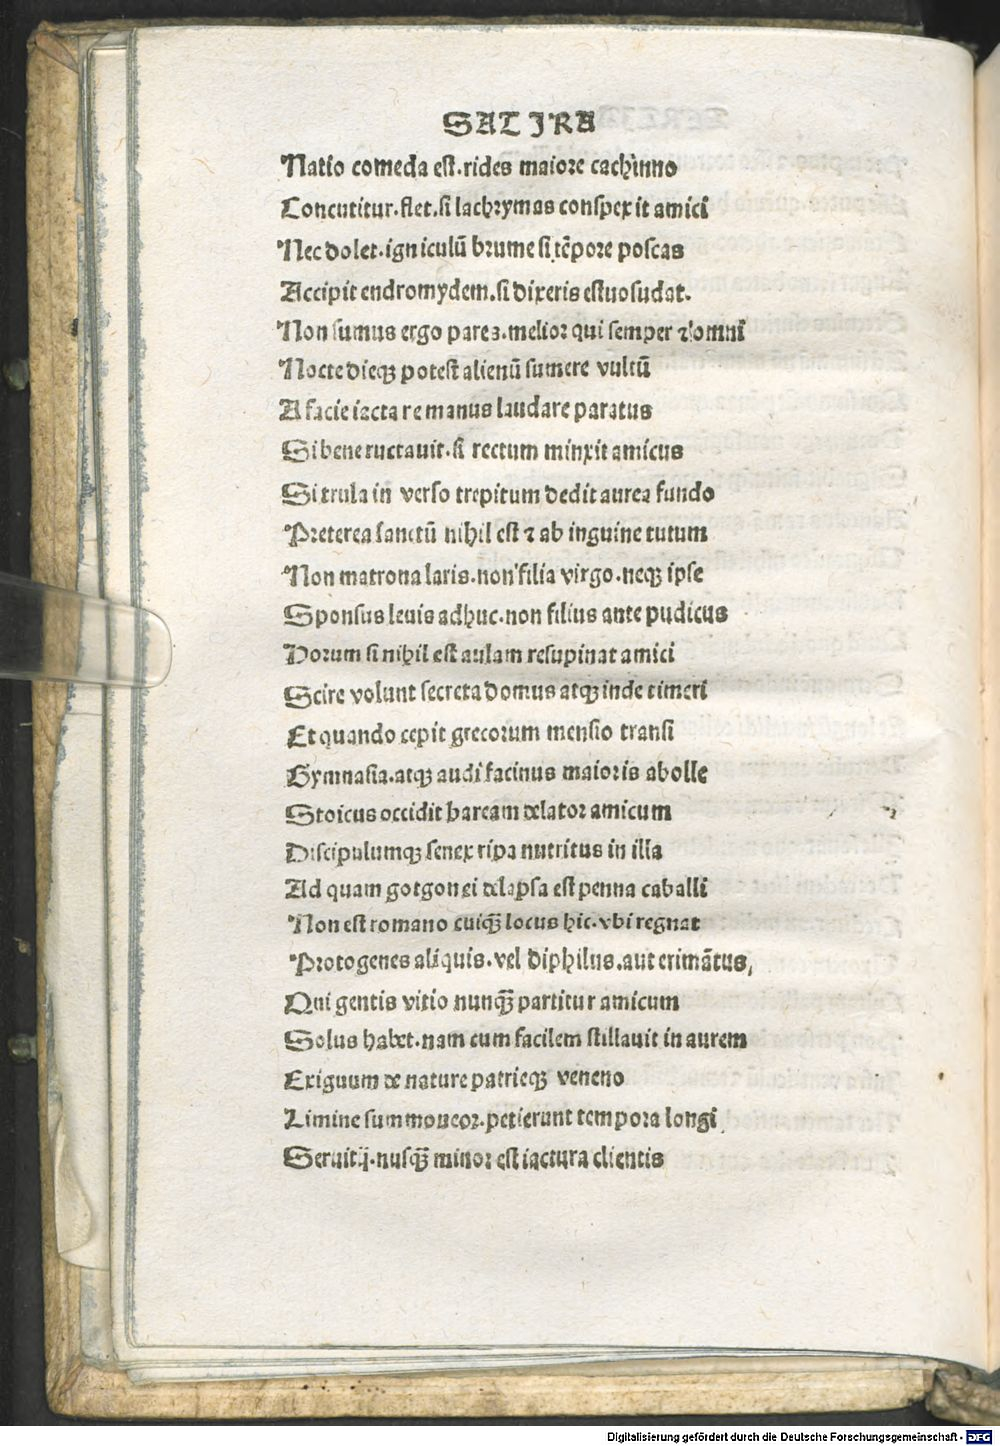 SATIRA
Natio comeda est. rides maiore cachinno
Concutitur. flet. si lachrymas conspexit amici
Nec dolet. igniculū brume si tēpore poscas
Accipit endromydem. si dixeris estuo sudat.
Non sumus ergo pares. melior qui semper ⁊ omni
Nocte dieqꝫ potest alienū sumere vultū
A facie iactare manus laudare paratus
Si bene ructauit. si rectum minxit amicus
Si trula in verso trepitum dedit aurea fundo
Preterea sanctū nihil est ⁊ ab inguine tutum
Non matrona laris. non filia virgo. neqꝫ ipse
Sponsus leuis adhuc. non filius ante pudicus
Horum si nihil est aulam resupinat amici
Scire volunt secreta domus atqꝫ inde timeri
Et quando cepit grecorum mensio transi
Gymnasia. atqꝫ audi facinus maioris abolle
Stoicus occidit baream delator amicum
Discipulumqꝫ senex ripa nutritus in illa
Ad quam gorgonei delapsa est penna caballi
Non est romano cuiqꝫ̄ locus hic. vbi regnat
Protogenes aliquis. vel diphilus. aut erimātus,
Qui gentis vitio nunqꝫ̄ partitur amicum
Solus habet. nam cum facilem stillauit in aurem
Exiguum de nature patrieqꝫ veneno
Limine summoueor. petierunt tempora longi
Seruitij. nusqꝫ̄ minor est iactura clientis
Digitalisierung gefördert durch die Deutsche Forschungsgemeinschaft - DFG